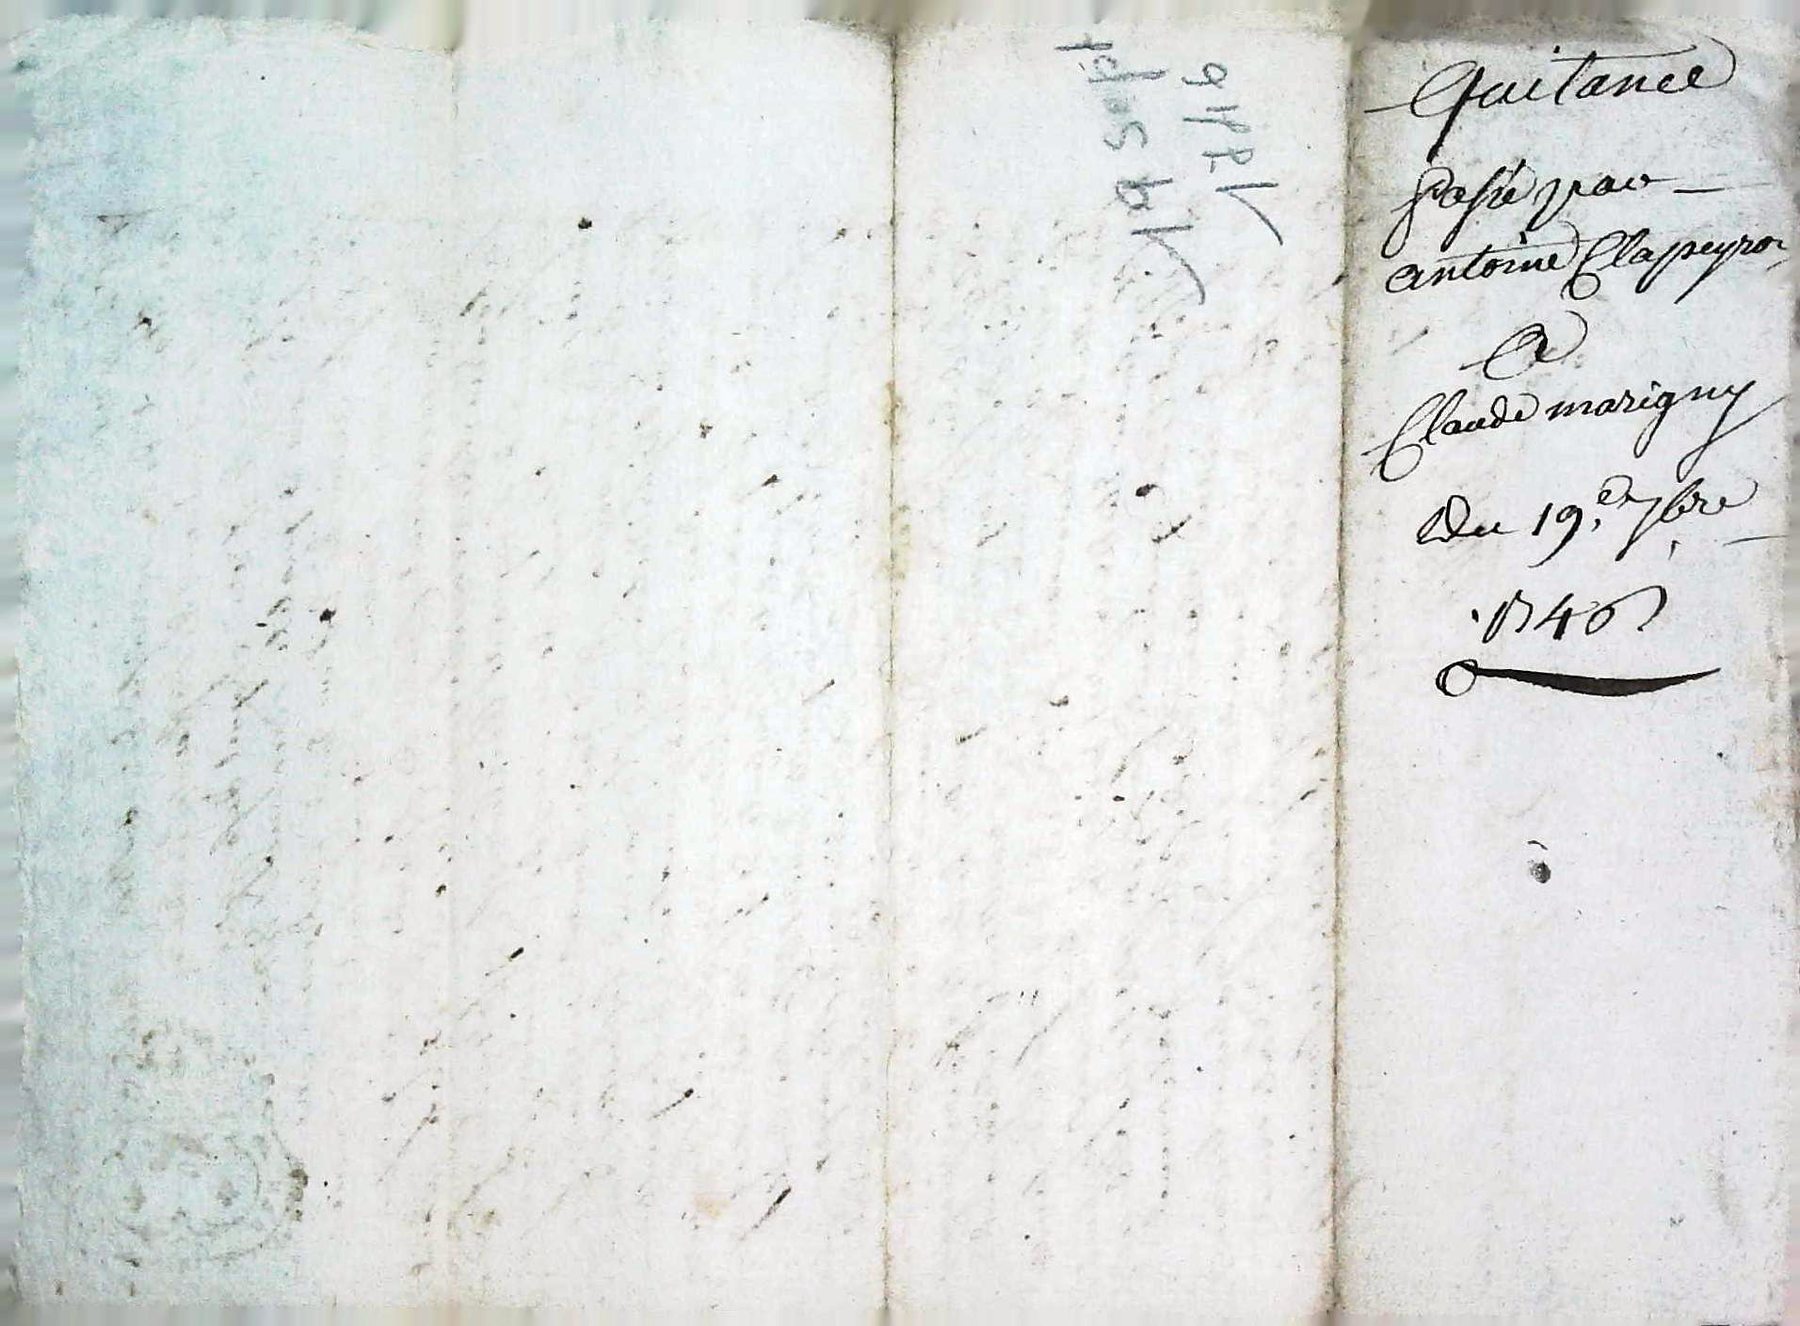 Quitance
passé par
antoine Clapeyron
A
Claude marigny
Du 19.e 7bre
1746
19 Sept
1746